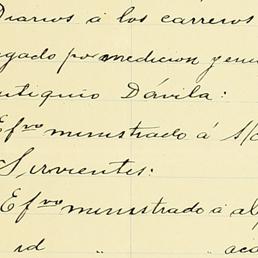 Diarios á los carreros
agado por medicion y enu
utiquio Dávila:
Efvo ministrado á s/c
Sirvientes:
Efvo ministrado á al
id " aca